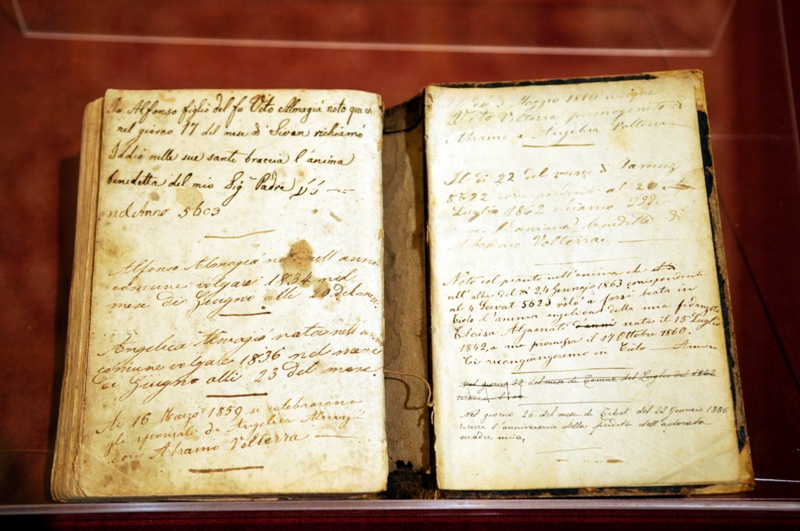 Io Alfonso figlio del fu Vito Almagià noto que
nel giorno 17 del mese di Sivan richiamò
Iddio nelle sue sante braccia l'anima
benedetta del mio Sig. Padre
nel Anno 5603
Alfonso Almagià nato nell anno
comune volgare 1834 nel
mese di Giugno alli 20 del mese
Angelica Almagià nata nell anno
comune volgale 1836 nel mese
di Giugno alli 23 del mese
Ai 16 Marzo 1859 si celebrarono
gli sponsali di Angelica Almagià
con Abramo Volterra
Il dì 5 Maggio 1860
Vito Volterra primogenito di
Abramo e Angelica Volterra
Il dì 22 del mese di Tamuz
5622 corrispondente al 20
Luglio 1862 chiamò Iddio
l'anima benedetta di
Abramo Volterra
Noto col pianto nell'anima che
all'alba del dì 24 Gennajo 1863 corrispondente
al 4 Sevat 5623 volò a farsi beata in
Cielo l'anima angelica della mia fidanzata
Eloisa nata il 15 Luglio
1842, a me promessa il 17 Ottobre 1860.
Ci ricongiungeremo in Cielo Amen
nel giorno del mese di Tamuz del Luglio del 1862
nel giorno 26 del mese di Tebet del 22 Gennaio 1886
l'anniversario della perdita dell'adorata
madre mia,